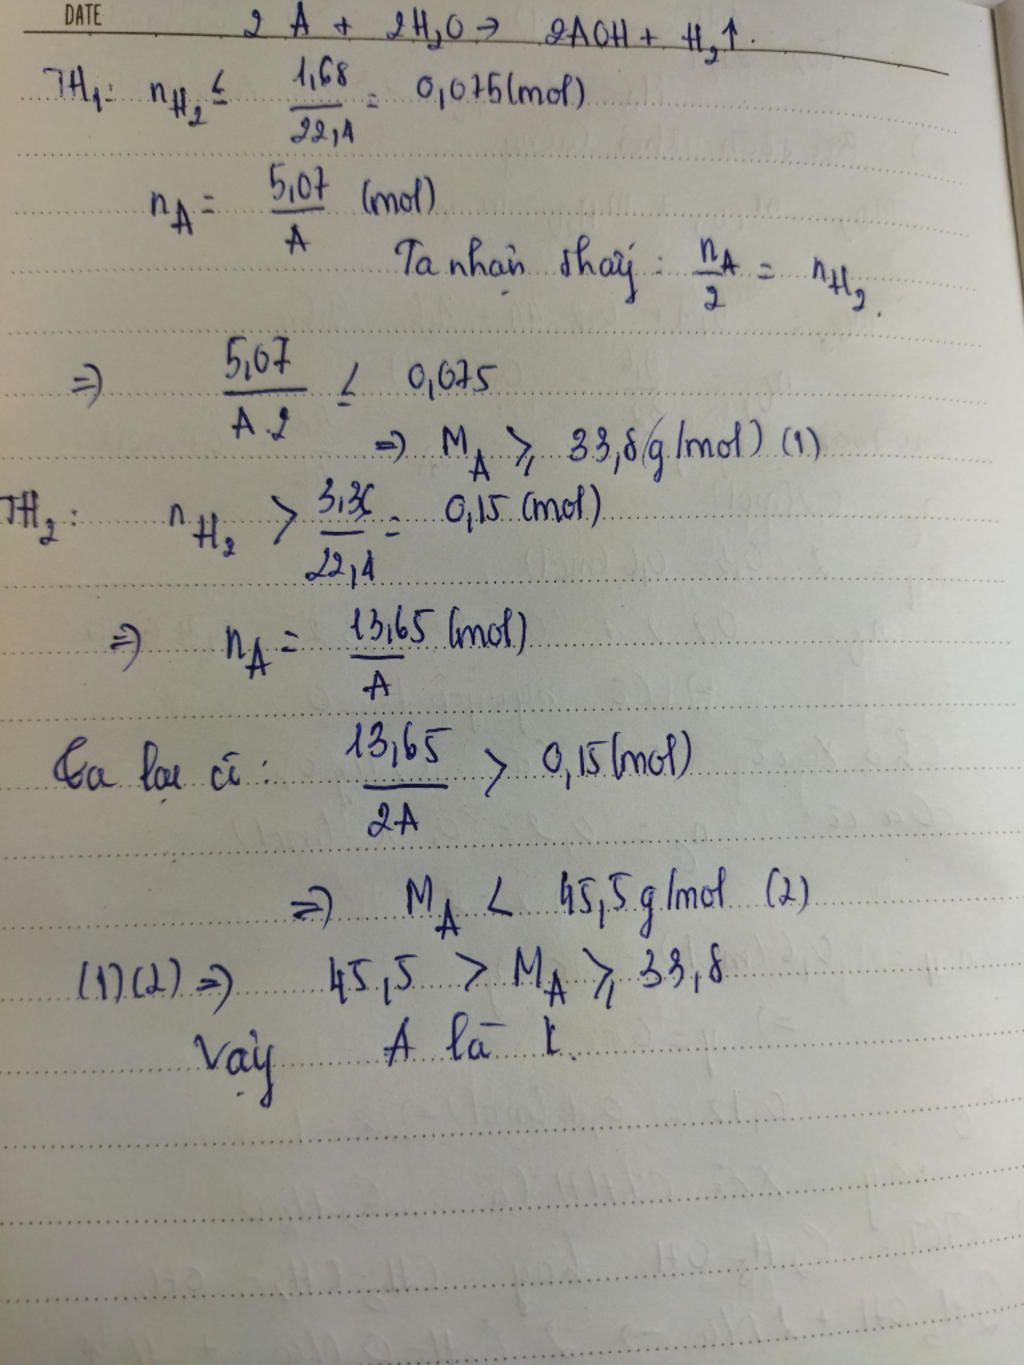 DATE
2 A + 2H₂O → 2AOH + H₂↑.
TH₁: nH₂ ≤ 1,68/22,4 = 0,075 (mol)
nA = 5,07/A (mol)
Ta nhận thấy: nA/2 = nH₂.
⇒ 5,07/A.2 ≤ 0,075
⇒ MA ≥ 33,8 (g/mol) (1)
TH₂: nH₂ > 3,36/22,4 = 0,15 (mol)
⇒ nA = 13,65/A (mol)
Ta lại có: 13,65/2A > 0,15 (mol)
⇒ MA < 45,5 g/mol (2)
(1)(2) ⇒ 45,5 > MA ≥ 33,8
Vậy A là K.